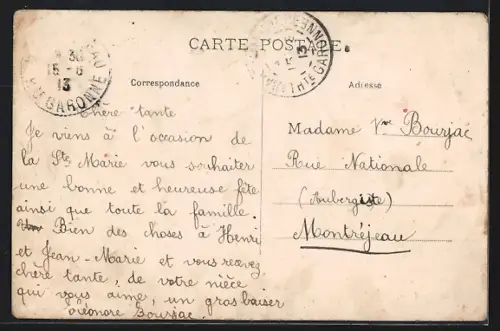 CARTE POSTALE
Correspondance
Adresse
15-8
13
Hte GARONNE
13
Hte GARONNE
Chère tante
Je viens à l'occasion de
la Ste Marie vous souhaiter
une bonne et heureuse fête
ainsi que toute la famille.
Bien des choses à Henri
et Jean-Marie et vous recevez
chère tante, de votre nièce
qui vous aime, un gros baiser
Eléonore Boussac.
Madame Vve Bourjac
Rue Nationale
(Aubergiste)
Montréjeau